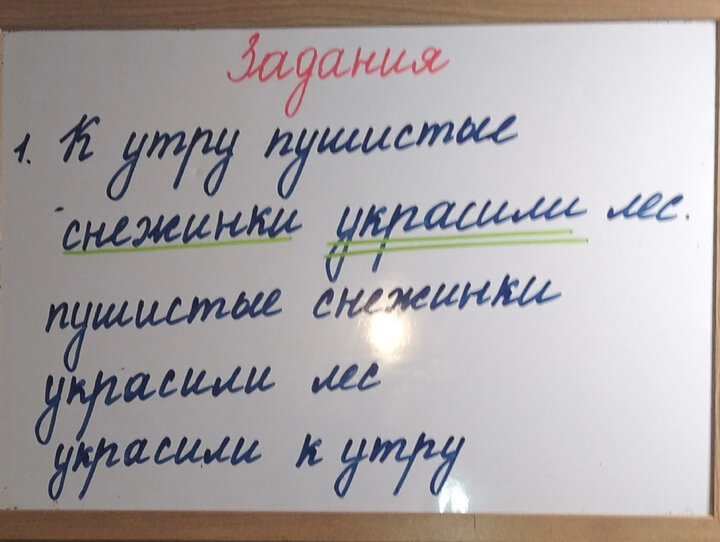 Задания
1. К утру пушистые
снежинки украсили лес.
пушистые снежинки
украсили лес
украсили к утру